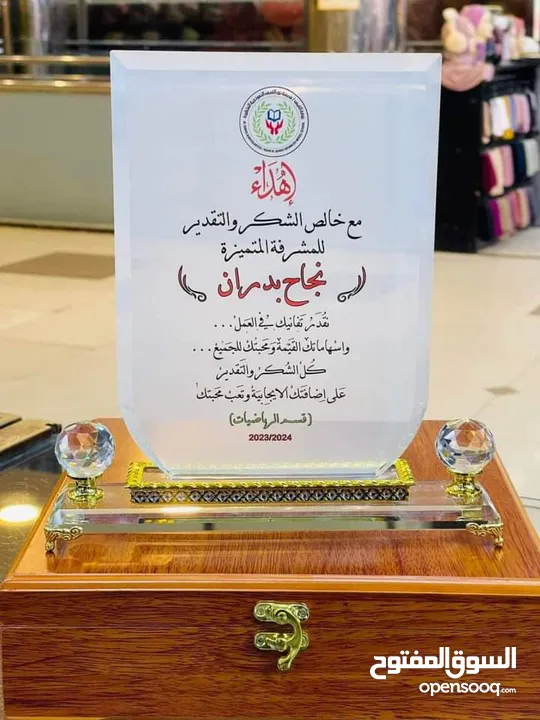 إهداء
مع خالص الشكر والتقدير
للمشرفة المتميزة
نجاح بدران
نقدر تفانيك في العمل...
واسهاماتك القيمة ومحبتك للجميع...
كل الشكر والتقدير
على إضافتك الايجابية وتعب محبتك
(قسم الرياضيات)
2023/2024
السوق المفتوح
opensooq.com